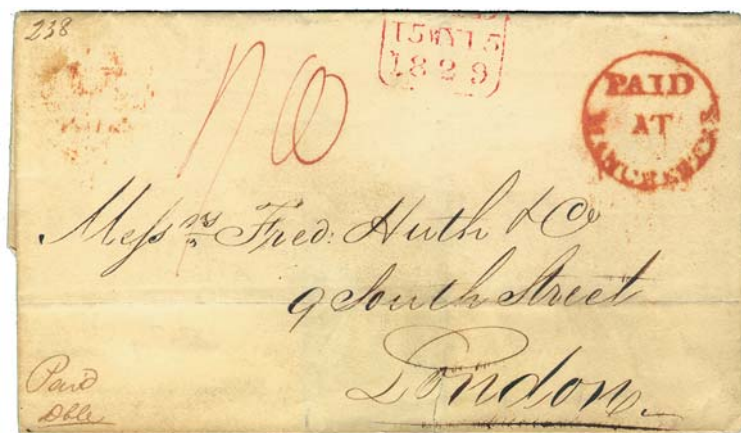 238
15MY15
1829
PAID
AT
MANCHESTER
Messrs Fred: Huth & Co
9 South Street
London
Paid
Dble